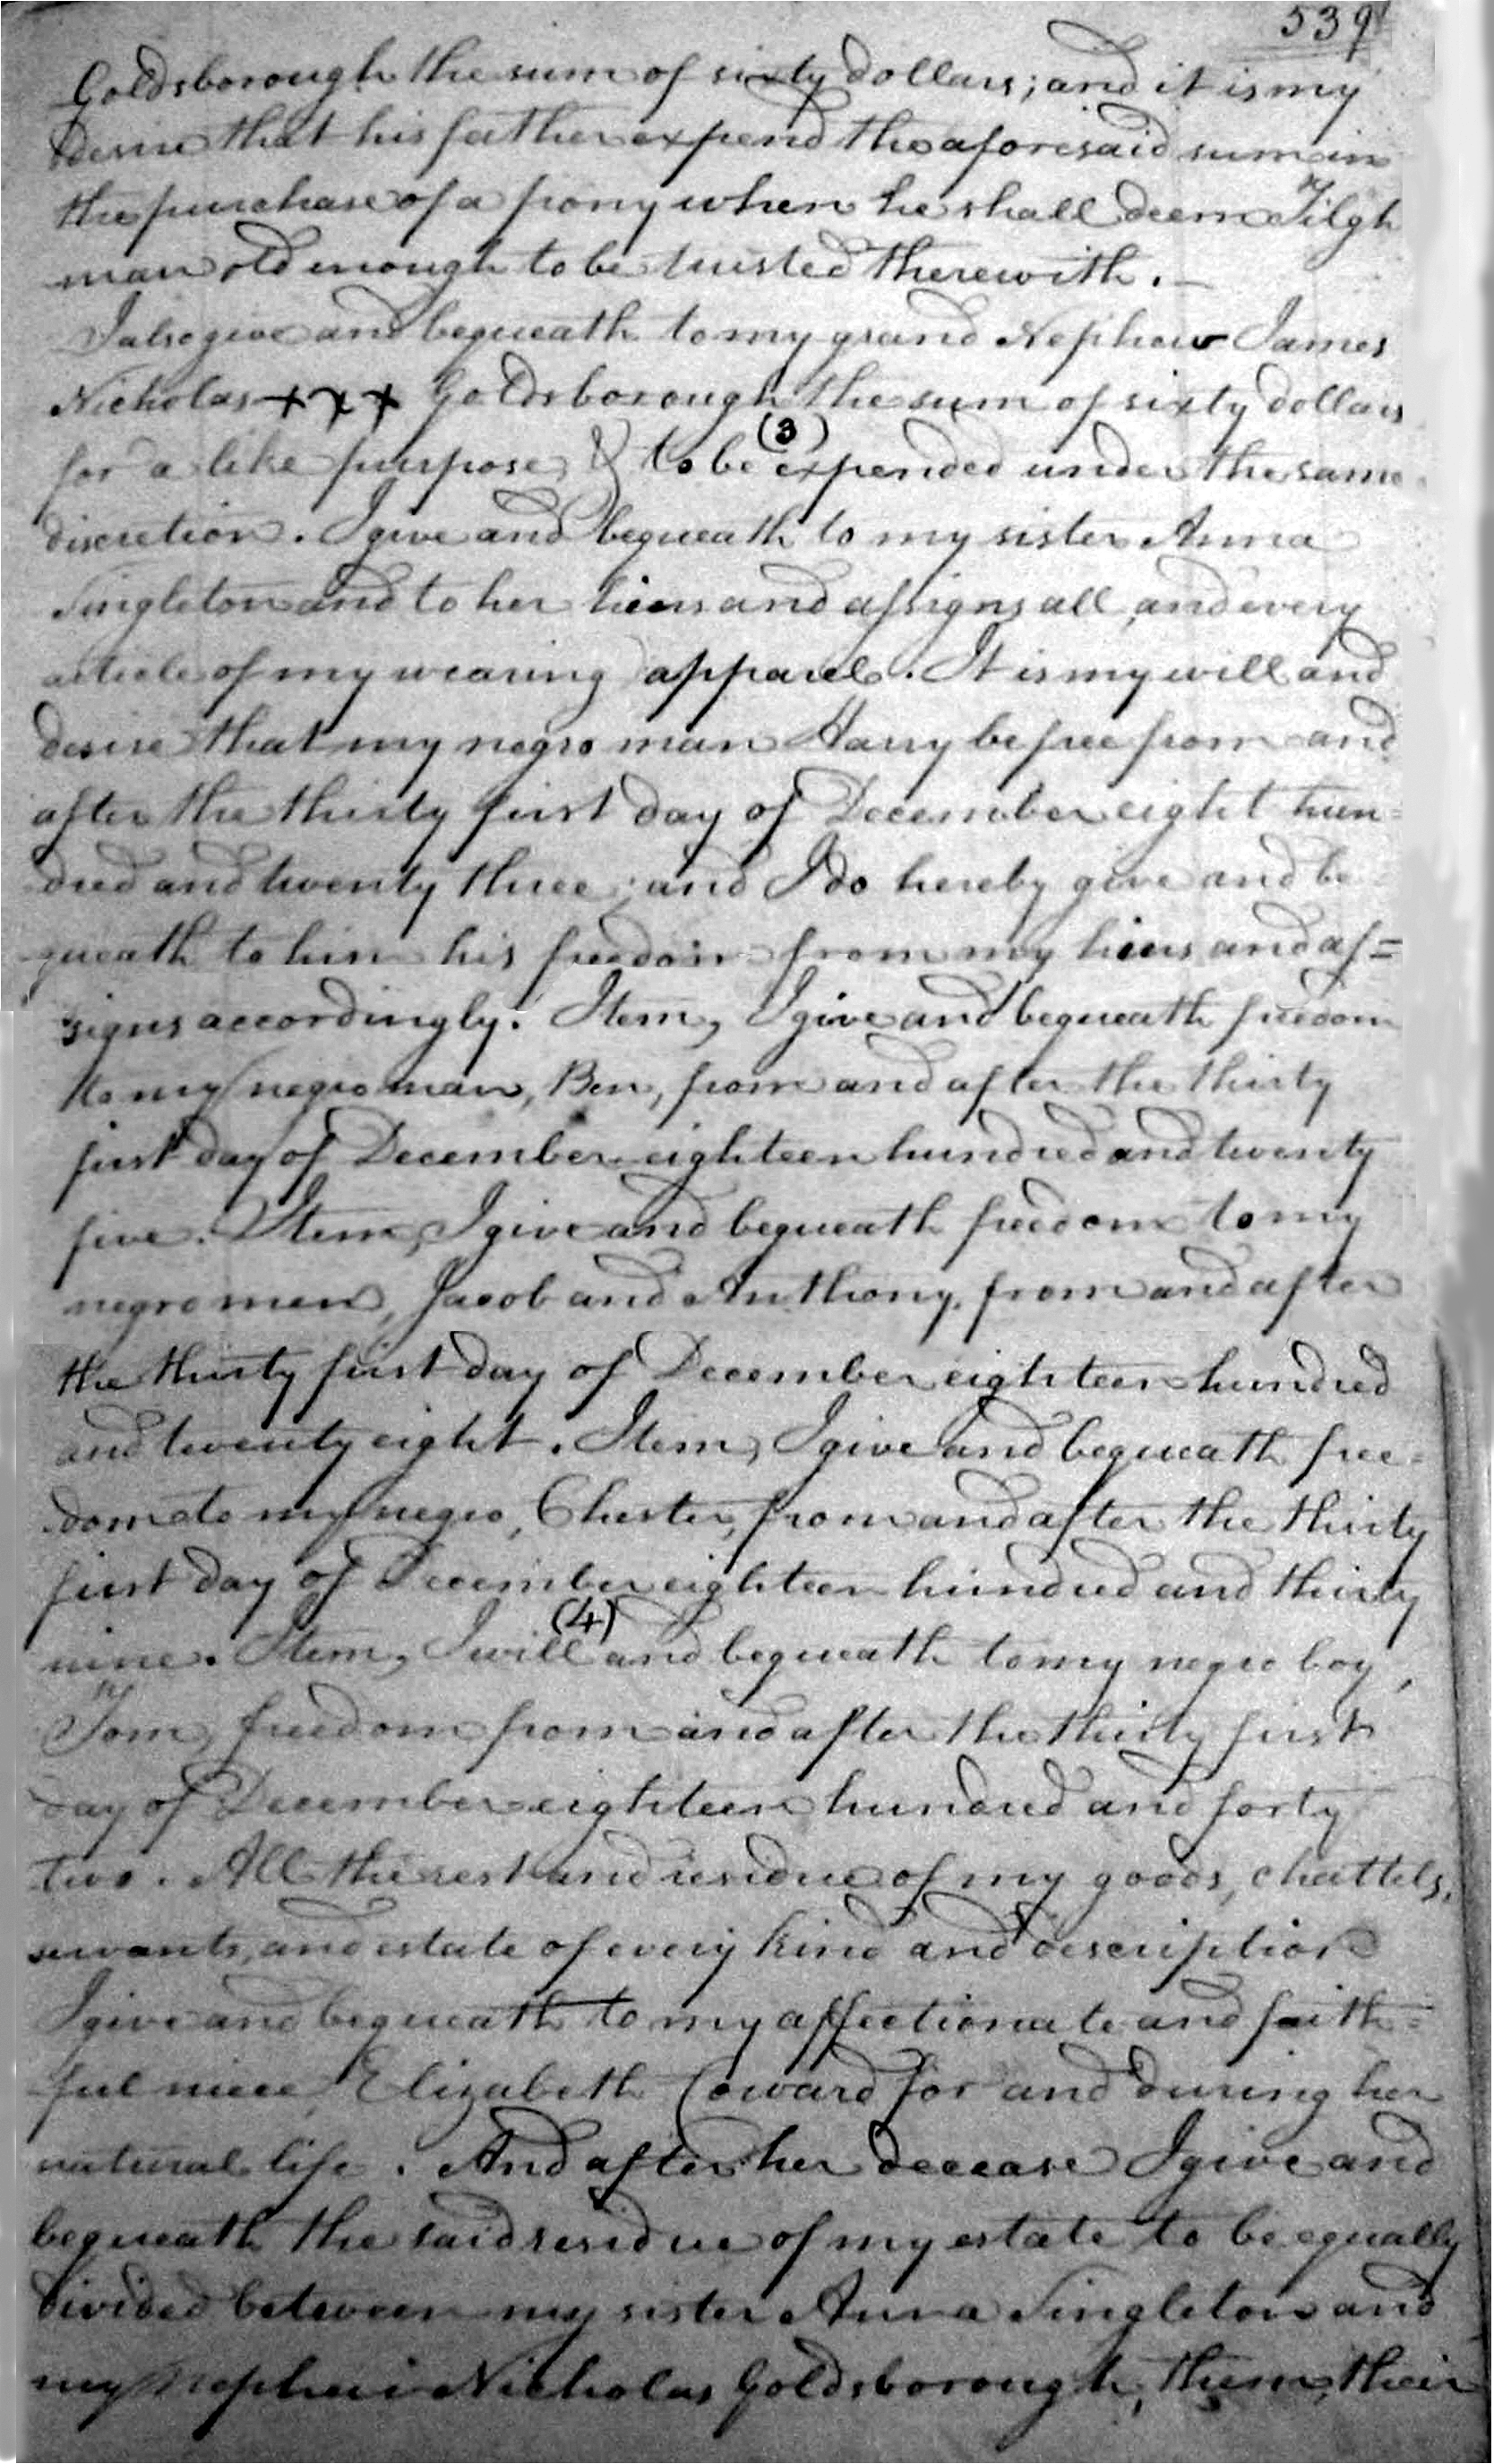 539
Goldsborough the sum of sixty dollars; and it is my
desire that his father expend the aforesaid sum in
the purchase of a pony when he shall deem Tilgh
man old enough to be trusted therewith. —
I also give and bequeath to my grand Nephew James
Nicholas +++ Goldsborough the sum of sixty dollars
(3)
for a like purpose, & to be expended under the same
discretion. I give and bequeath to my sister Anna
Singleton and to her heirs and assigns all and every
article of my wearing apparel. It is my will and
desire that my negro man Harry be free from and
after the thirty first day of December eight hun-
dred and twenty three; and I do hereby give and be
queath to him his freedom from my heirs and as=
signs accordingly. Item, I give and bequeath freedom
to my negro man, Ben, from and after the thirty
first day of December eighteen hundred and twenty
five. Item, I give and bequeath freedom to my
negro men, Jacob and Anthony, from and after
the thirty first day of December eighteen hundred
and twenty eight. Item, I give and bequeath free-
dom to my negro, Chester, from and after the thirty
first day of December eighteen hundred and thirty
(4)
nine. Item, I will and bequeath to my negro boy,
Tom, freedom from and after the thirty first
day of December eighteen hundred and forty
two. All the rest and residue of my goods, chattels,
servants, and estate of every kind and description
I give and bequeath to my affectionate and faith=
ful niece, Elizabeth Coward for and during her
natural life. And after her decease I give and
bequeath the said residue of my estate to be equally
divided between my sister Anna Singleton and
my nephew Nicholas Goldsborough, them, their